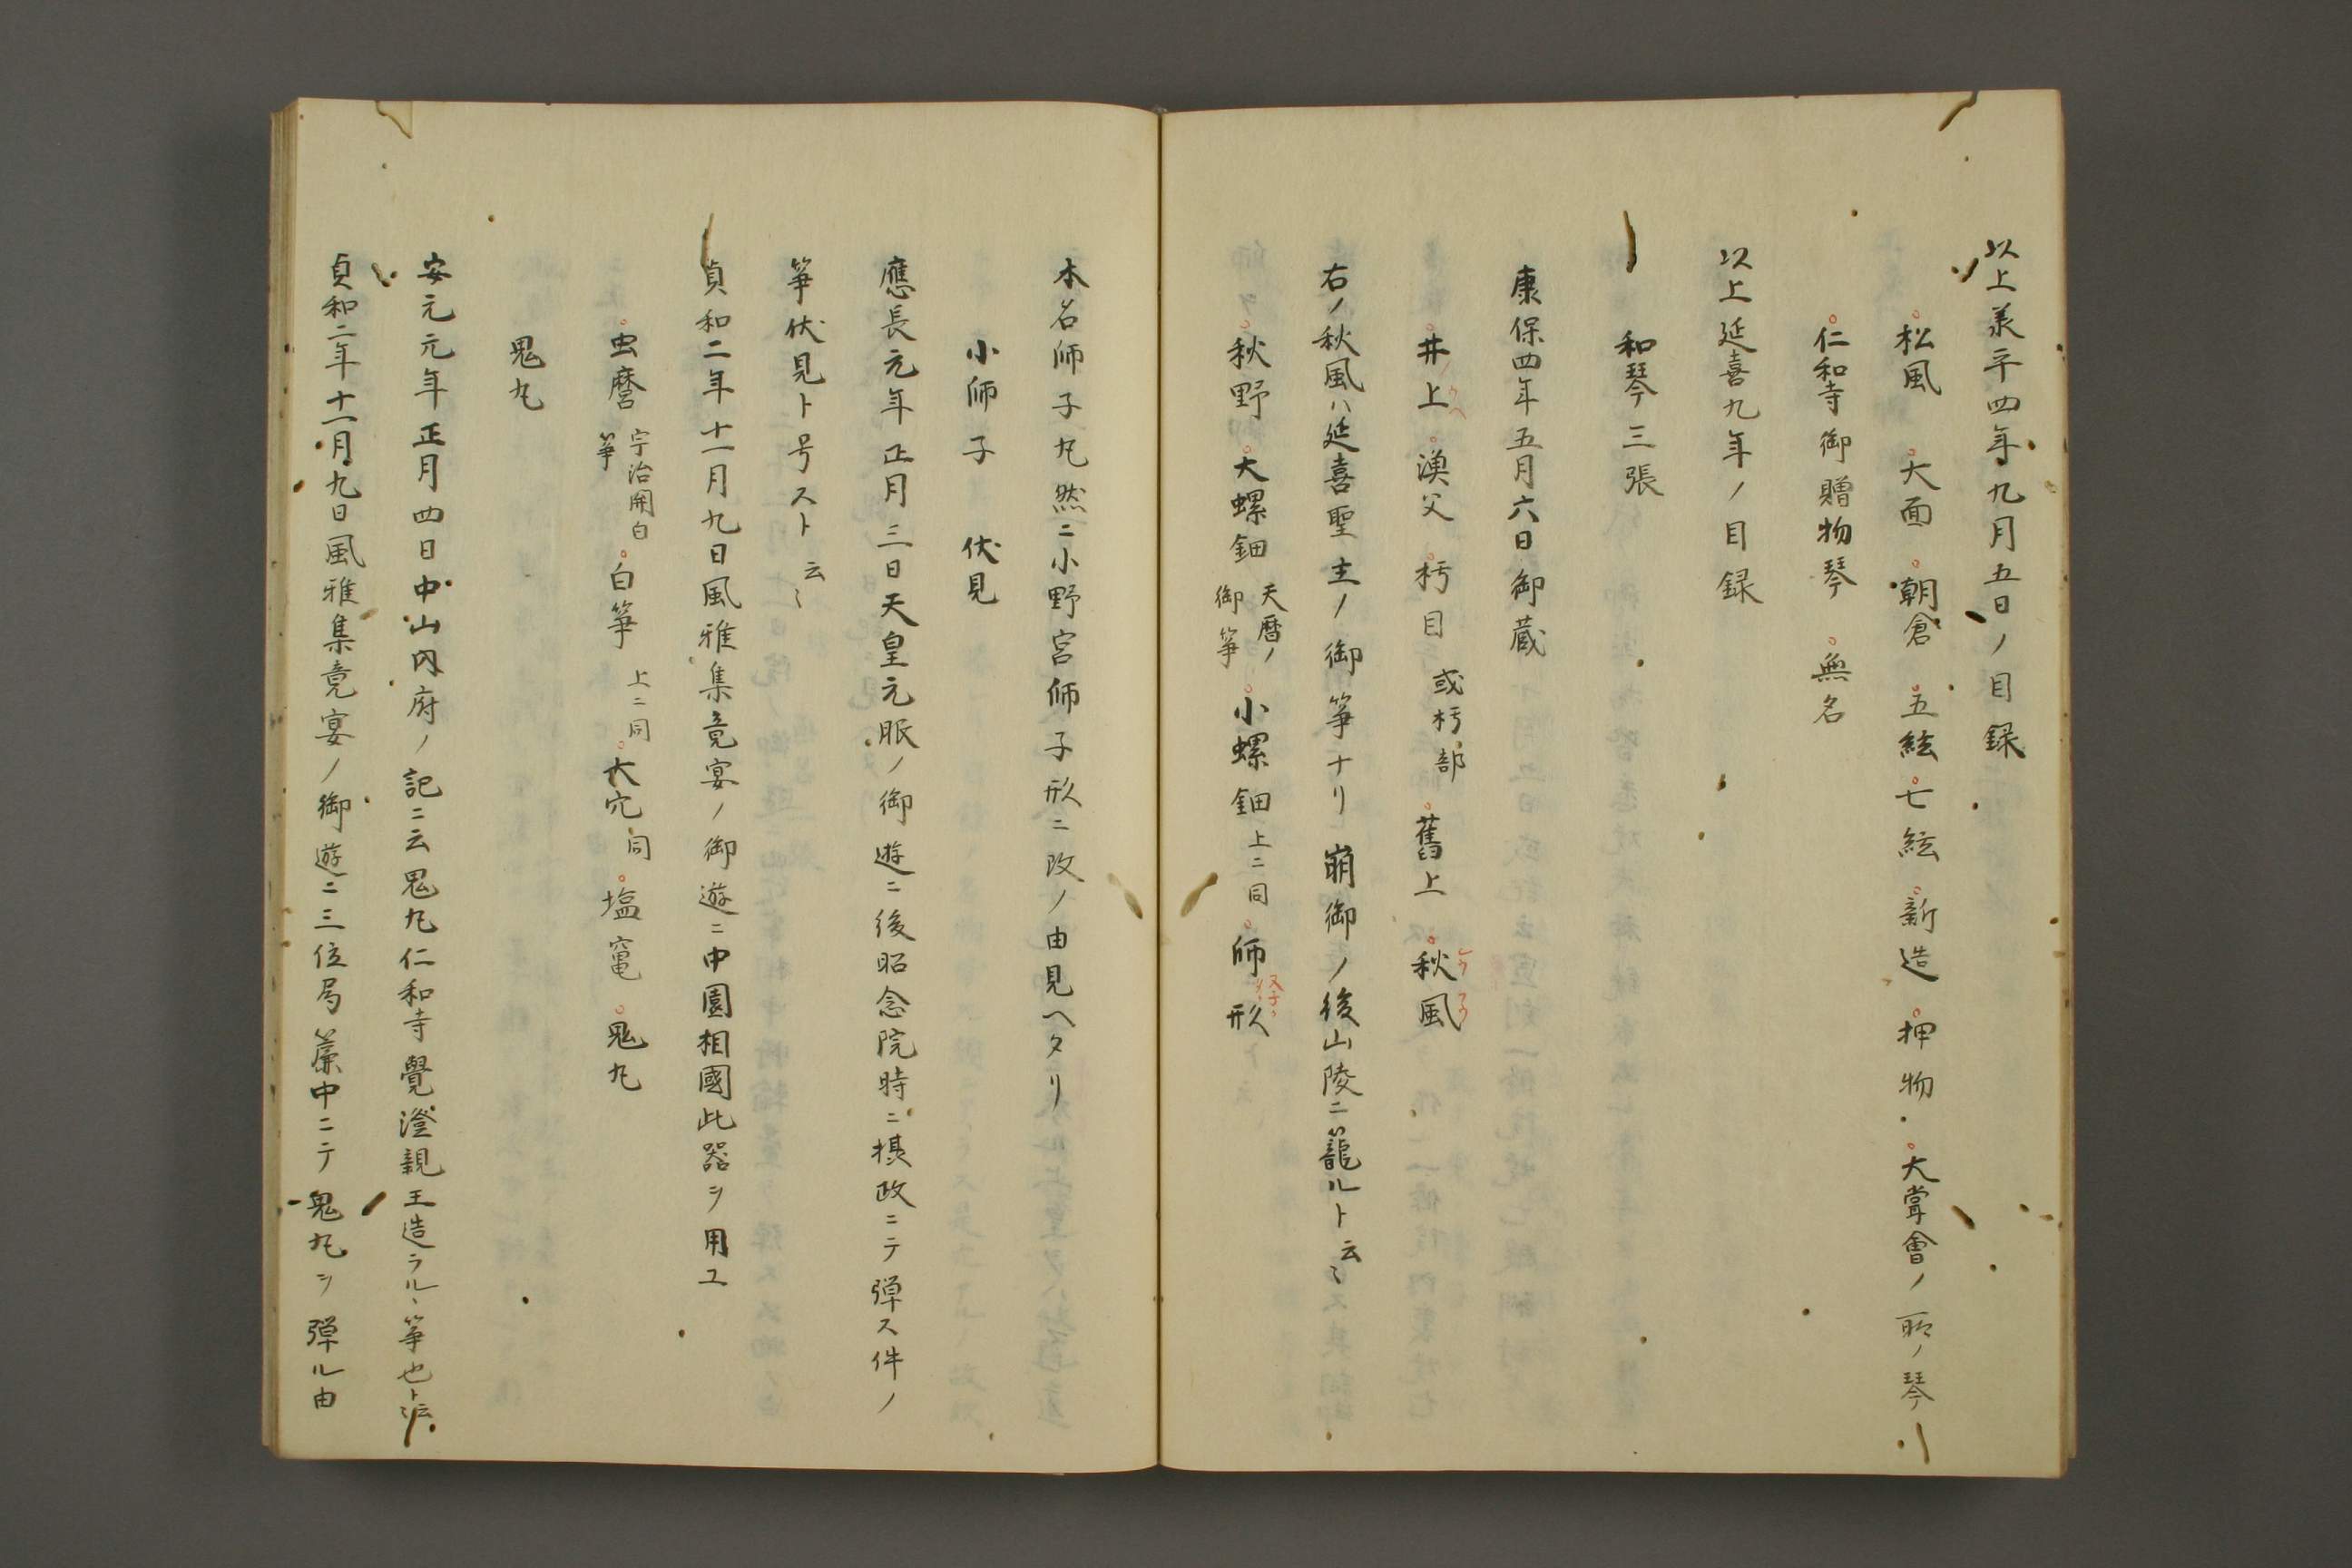 以上承平四年九月五日ノ目録
松風 大面 朝倉 五絃 七絃 新造 押物 大嘗會ノ所ノ琴
仁和寺御贈物琴 無名
以上延喜九年ノ目録
和琴三張
康保四年五月六日御蔵
井ノ上 漁父 朽目 或朽部 舊上 秋風
右ノ秋風ハ延喜聖主ノ御箏ナリ崩御ノ後山陵ニ籠ルト云〻
秋野 大螺鈿 天暦ノ御箏 小螺鈿 上ニ同 師形
本名師子丸然ニ小野宮師子形ニ改ノ由見ヘタリ
小師子 伏見
應長元年正月三日天皇元服ノ御遊ニ後昭念院時ニ摂政ニテ弾ス件ノ
箏伏見ト号スト云〻
貞和二年十一月九日風雅集竟宴ノ御遊ニ中園相國此器ヲ用ユ
虫麿 宇治関白箏 白箏 上ニ同 大穴 同 塩竃 鬼丸
鬼丸
安元元年正月四日中山内府ノ記ニ云鬼丸仁和寺覺澄親王造ラルヽ箏也ト云〻
貞和二年十一月九日風雅集竟宴ノ御遊ニ三位局簾中ニテ鬼丸ヲ弾ル由